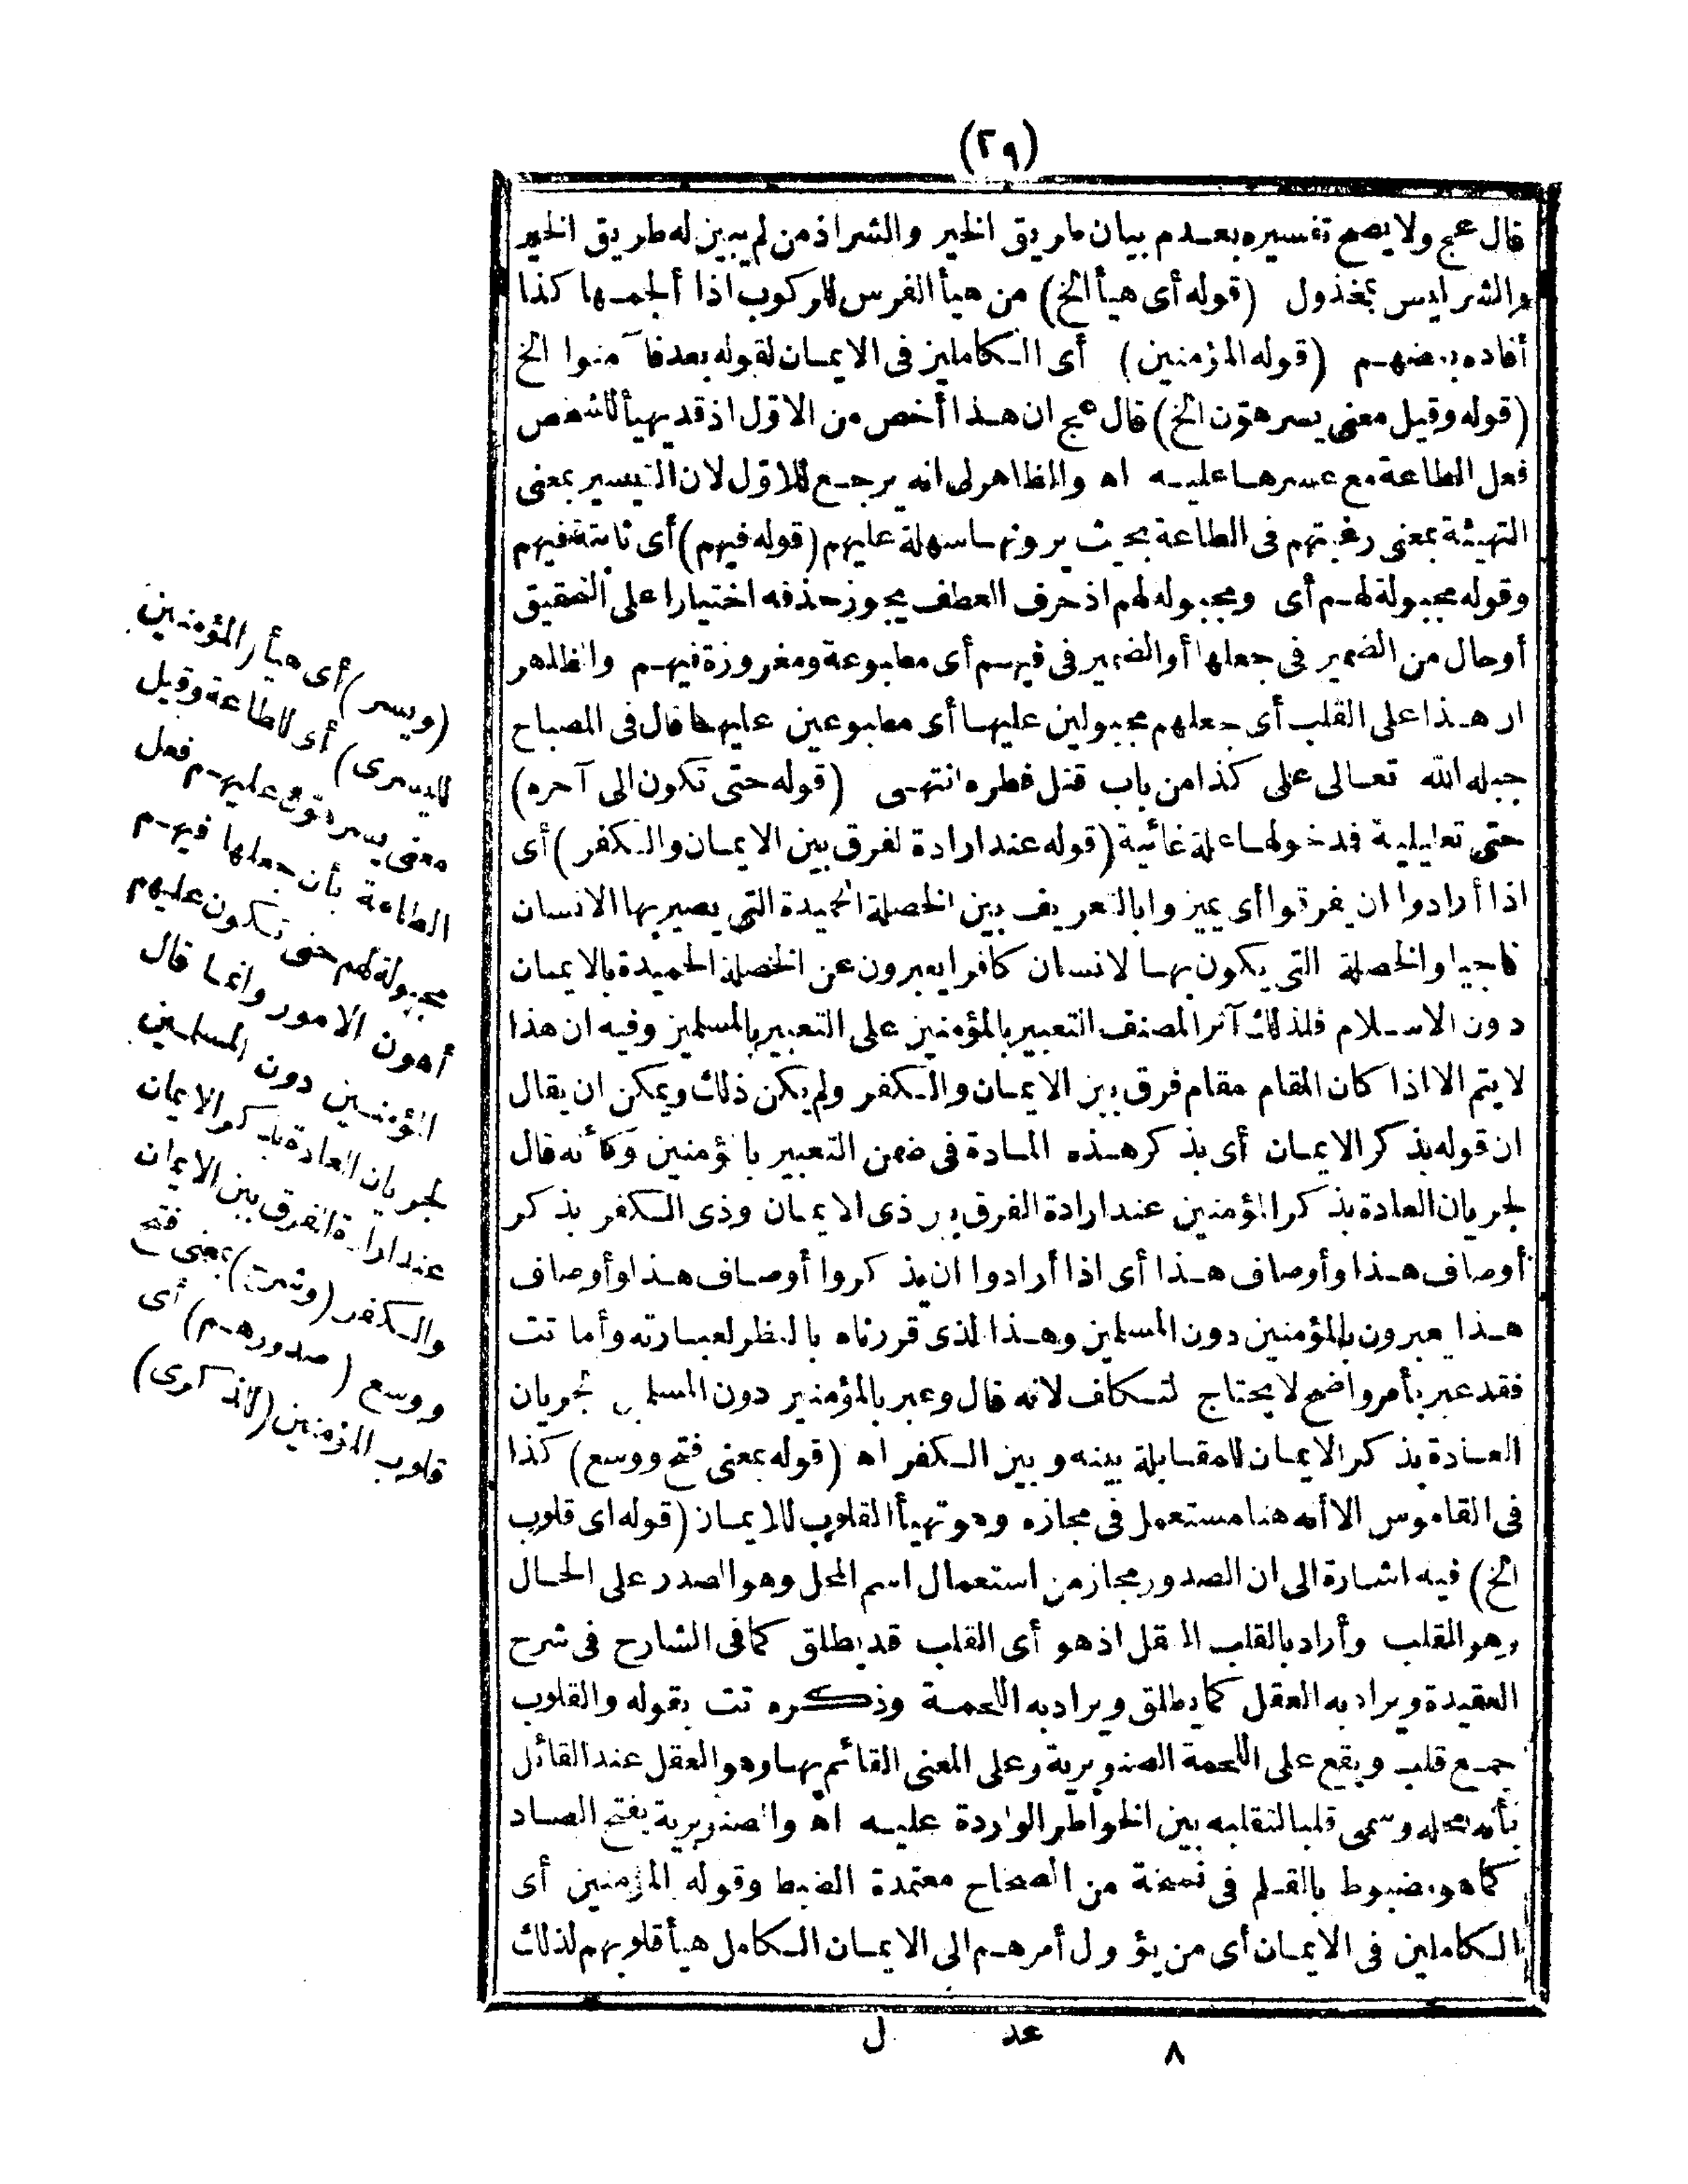 (٢٩)
قال عج ولا يصح تفسيره بعدم بيان طريق الخير والشر اذ من لم يبين له طريق الخير
والشر ليس بمخذول (قوله أى هيأ الخ) من هيأ الفرس للركوب اذا ألجمها كذا
أفاده بعضهم (قوله المؤمنين) أى الكاملين فى الايمان لقوله بعد فآمنوا الخ
(قوله وقيل معنى يسر هوّن الخ) قال عج ان هذا أخص من الاوّل اذ قد يهيأ للشخص
فعل الطاعة مع عسرها عليه اه والظاهر لى انه يرجع للاوّل لان التيسير بمعنى
التهيئة بمعنى رغبتهم فى الطاعة بحيث يرونها سهلة عليهم (قوله فيهم) أى ثابتة فيهم
وقوله مجبولة لهم أى ومجبولة لهم اذ حرف العطف يجوز حذفه اختيارا على التحقيق
أوحال من الضمير فى جعلها أو الضمير فى فيهم أى مطبوعة ومغروزة فيهم والظاهر
ان هذا على القلب أى جعلهم مجبولين عليها أى مطبوعين عليها قال فى المصباح
جبله الله تعالى على كذا من باب قتل فطره انتهى (قوله حتى تكون الى آخره)
حتى تعليلية فدخولها علة غائية (قوله عند ارادة لفرق بين الايمان والكفر) أى
اذا أرادوا ان يفرقوا أى يميزوا بالتعريف بين الخصلة الحميدة التى يصير بها الانسان
ناجيا والخصلة التى يكون بها لانسان كافرا يعبرون عن الخصلة الحميدة بالايمان
دون الاسلام فلذلك آثر المصنف التعبير بالمؤمنين على التعبير بالمسلمين وفيه ان هذا
لا يتم الا اذا كان المقام مقام فرق بين الايمان والكفر ولم يكن ذلك ويمكن ان يقال
ان قوله بذكر الايمان أى بذكر هذه المادة فى ضمن التعبير بالمؤمنين وكأنه قال
لجريان العادة بذكر المؤمنين عند ارادة الفرق بين ذى الايمان وذى الكفر بذكر
أوصاف هذا وأوصاف هذا أى اذا أرادوا ان يذكروا أوصاف هذا وأوصاف
هذا يعبرون بالمؤمنين دون المسلمين وهذا لذى قررناه بالنظر لعبارته وأما تت
فقد عبر بأمر واضح لا يحتاج لتكلف لانه قال وعبر بالمؤمنين دون المسلمين لجريان
العادة بذكر الايمان للمقابلة بينه وبين الكفر اه (قوله بمعنى فتح ووسع) كذا
فى القاموس الا أنه هنا مستعمل فى مجازه وهو تهيأ القلوب للايمان (قوله اى قلوب
الخ) فيه اشارة الى ان الصدور مجاز من استعمال اسم المحل وهو الصدر على الحال
وهو القلب وأراد بالقلب العقل اذ هو أى القلب قد يطلق كما فى الشارح فى شرح
العقيدة ويراد به العقل كما يطلق ويراد به اللحمة وذكره تت بقوله والقلوب
جمع قلب ويقع على اللحمة الصنوبرية وعلى المعنى القائم بها وهو العقل عند القائل
بأنه محله وسمى قلبا لتقلبه بين الخواطر الواردة عليه اه والصنوبرية بفتح الصاد
كما هو مضبوط بالقلم فى نسخة من الصحاح معتمدة الضبط وقوله المؤمنين أى
الكاملين فى الايمان أى من يؤول أمرهم الى الايمان الكامل هيأ قلوبهم لذلك
(ويسر) أى هيأ (المؤمنين
لليسرى) أى للطاعة وقيل
معنى يسر هوّن عليهم فعل
الطاعة بأن جعلها فيهم
مجبولة لهم حتى تكون عليهم
أهون الامور وانما قال
المؤمنين دون المسلمين
لجريان العادة بذكر الايمان
عند ارادة الفرق بين الايمان
والكفر (وشرح) بمعنى فتح
ووسع (صدورهم) أى
قلوب المؤمنين (للذكرى)
٨ عد ل